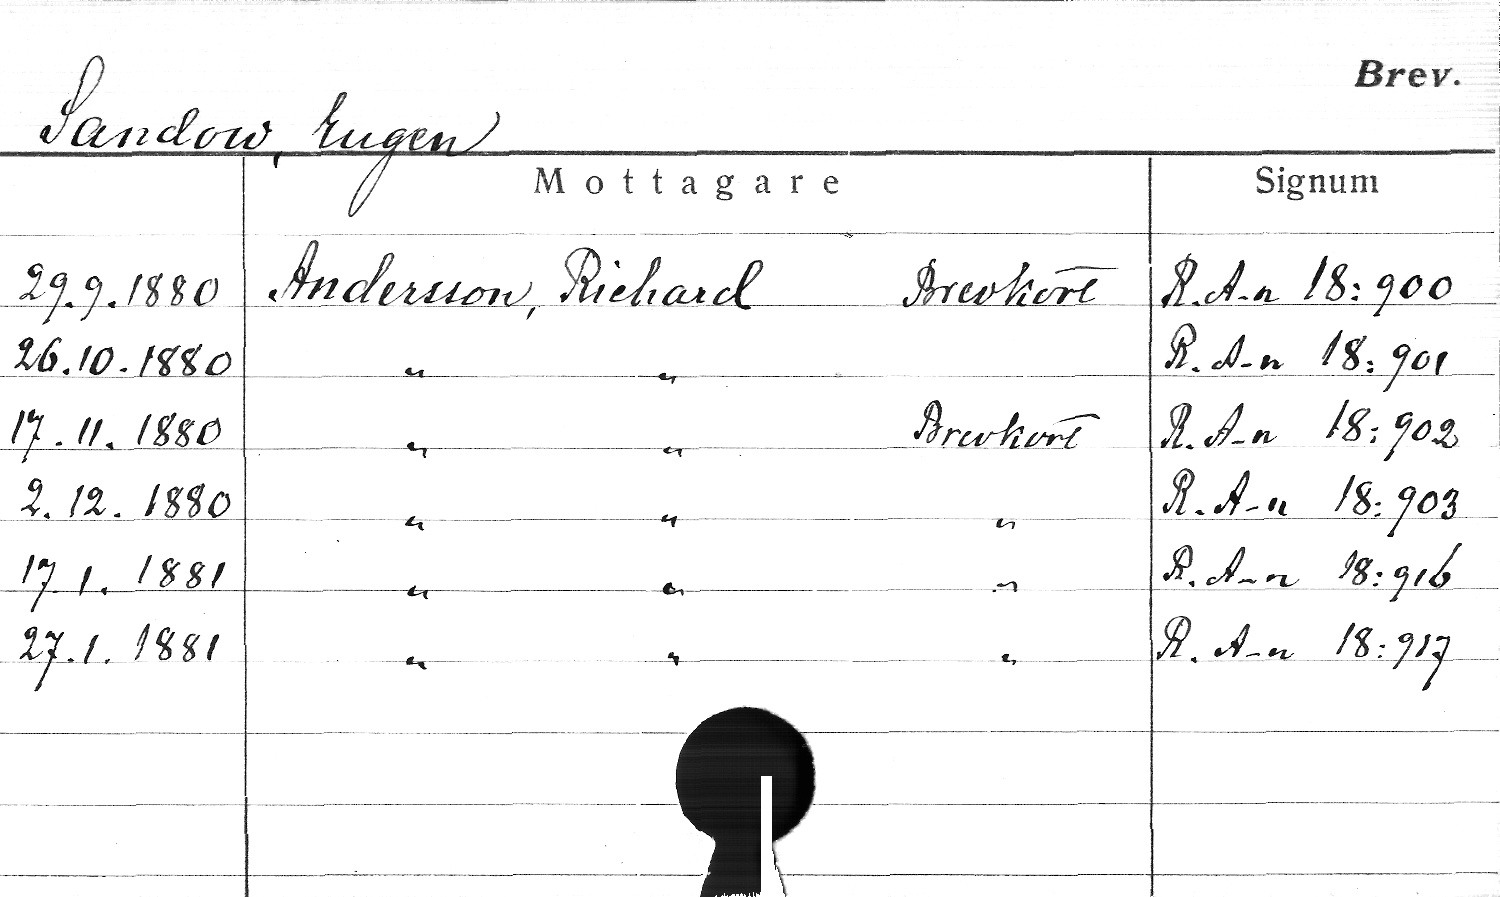 Brev.
Sandow, Eugen
Mottagare Signum
29.9.1880 Andersson, Richard Brevkort R. A-n 18:900
26.10.1880 " " R. A-n 18:901
17.11.1880 " " Brevkort R. A-n 18:902
2.12.1880 " " " R. A-n 18:903
17.1.1881 " " " R. A-n 18:916
27.1.1881 " " " R. A-n 18:917